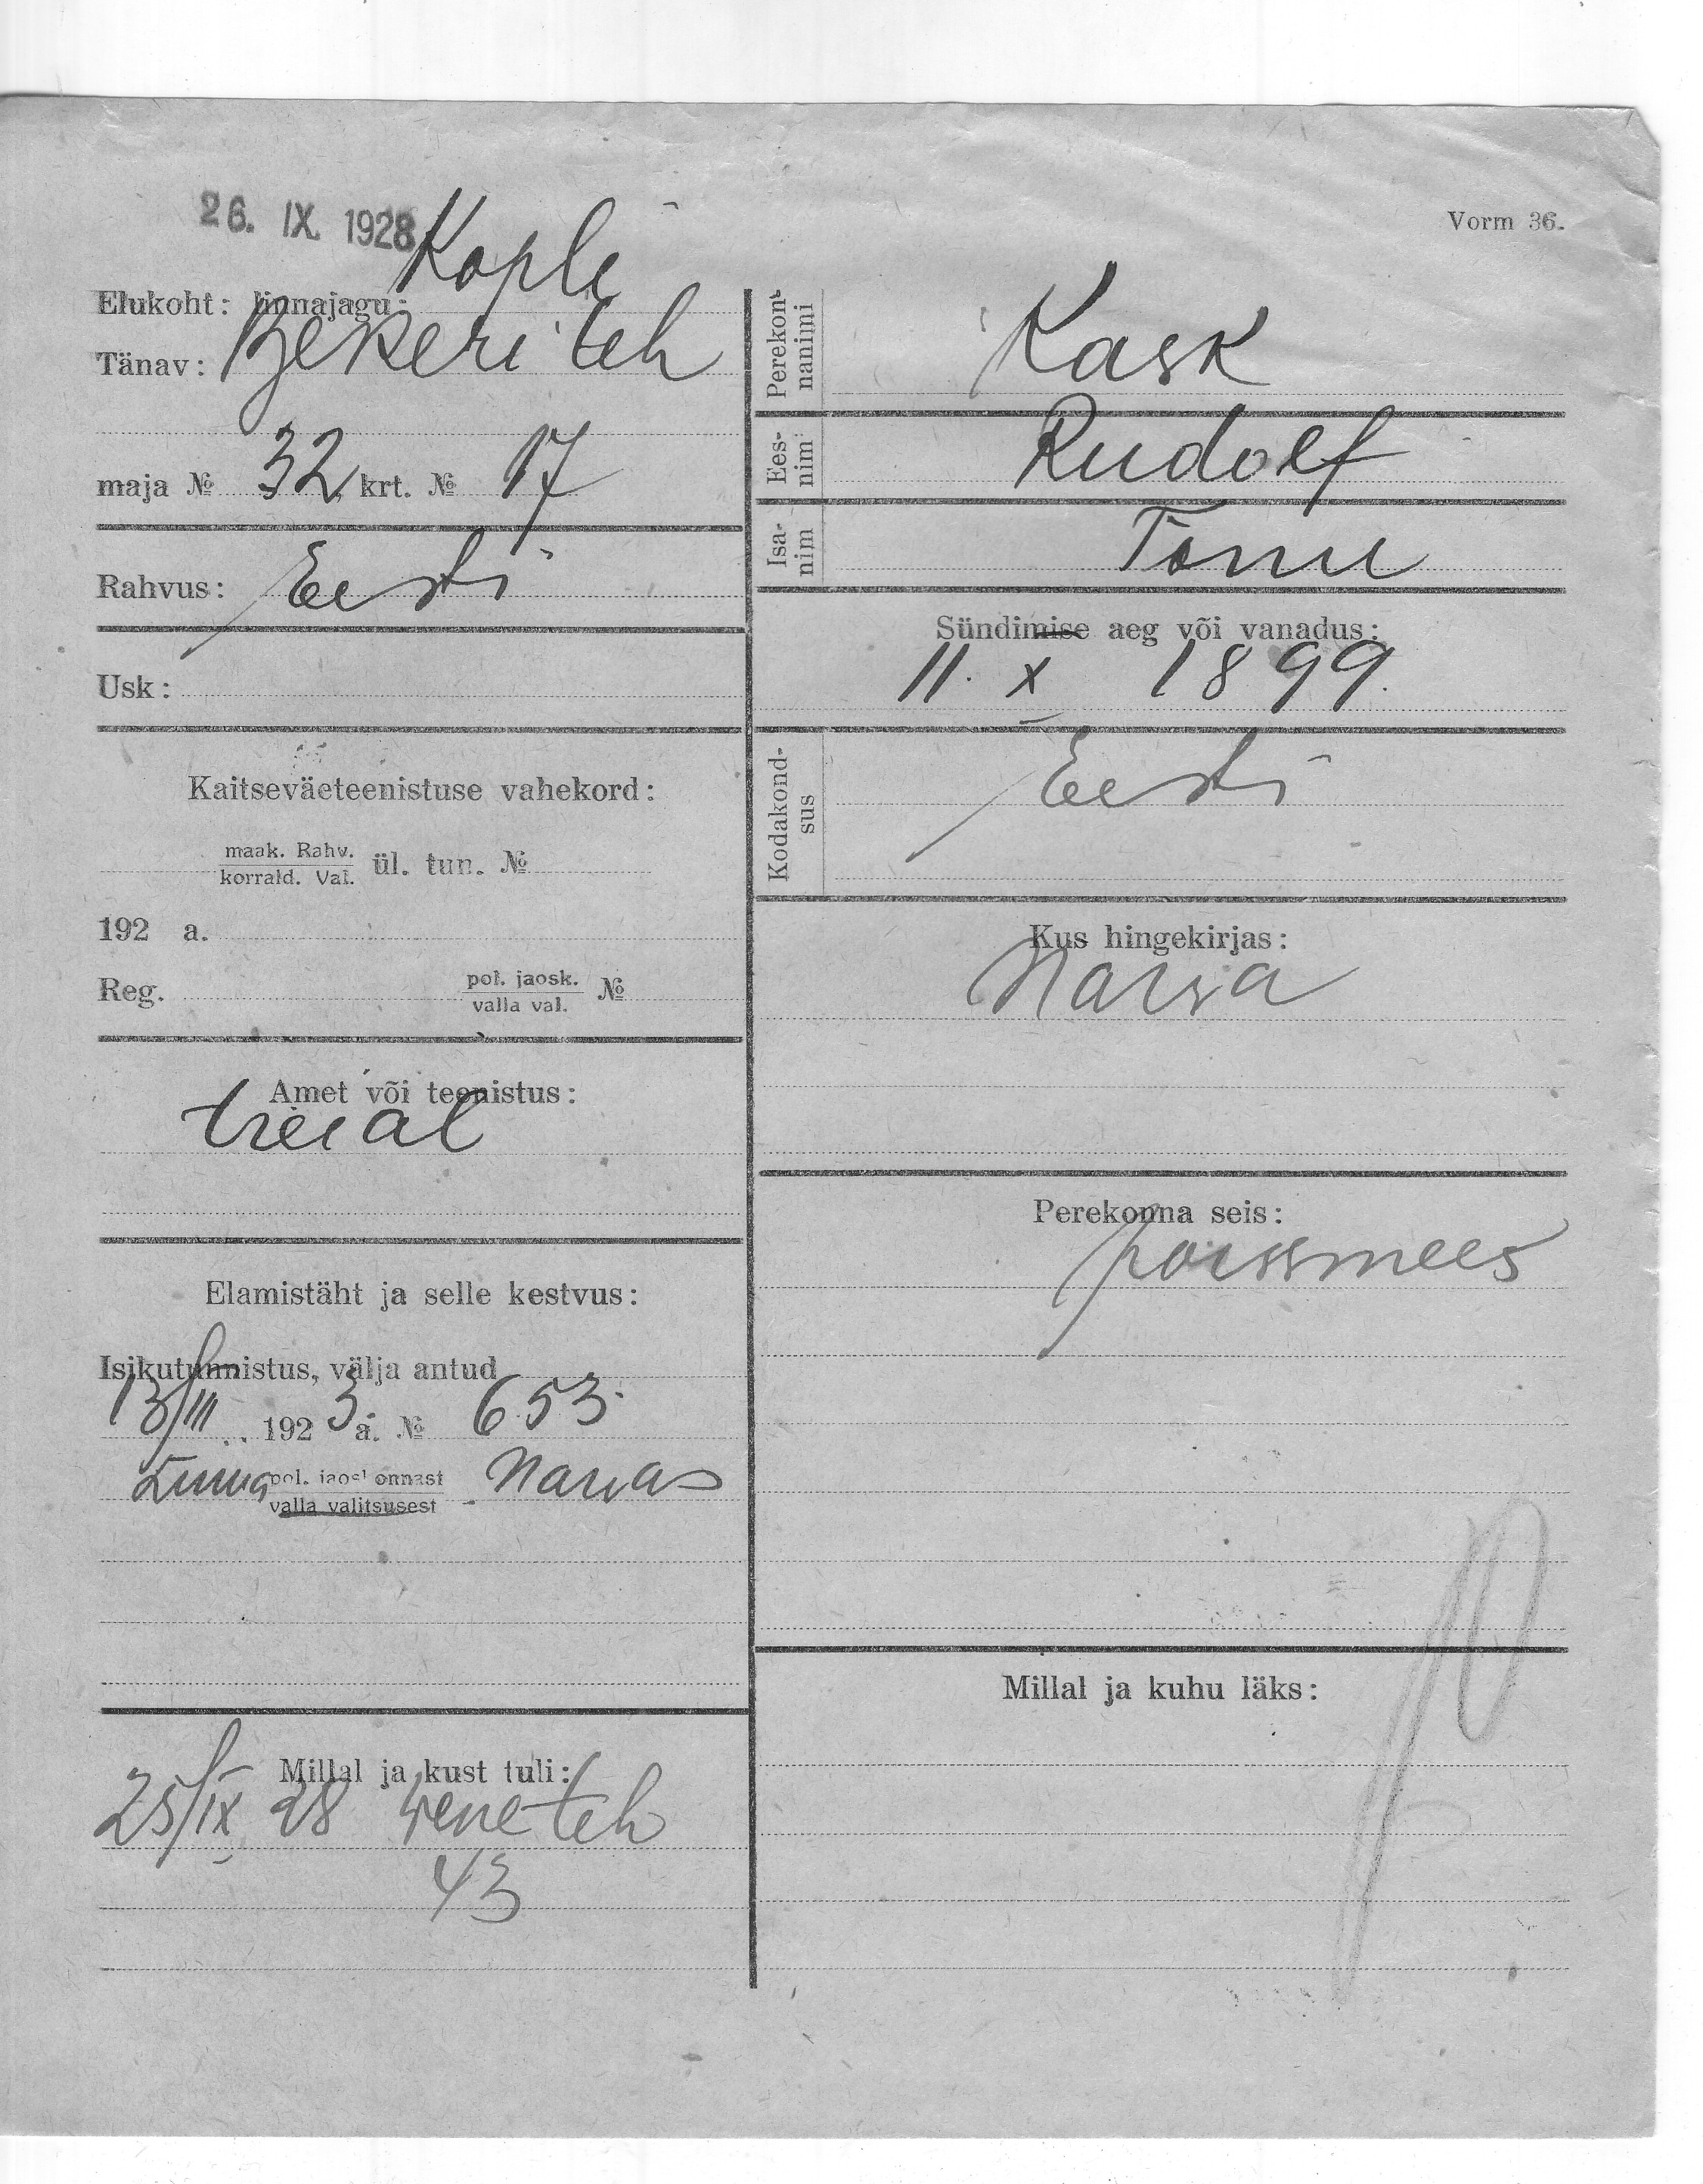 26. IX. 1928
Kopli
Vorm 36.
Elukoht: linnajagu:
Tänav: Bekeri teh
maja № 32 krt. № 17
Rahvus: Eesti
Usk:
Kaitseväeteenistuse vahekord:
maak. Rahv.
korrald. Val.
ül. tun. №
192 a.
Reg.
pol. jaosk.
valla val.
№
Amet või teenistus:
treial
Elamistäht ja selle kestvus:
Isikutunnistus, välja antud
13/III 1923 a. № 653
Linna pol. jaoskonnast Narvas
valla valitsusest
Millal ja kust tuli:
25/IX 28 Vene teh
43
Perekonnanimi
Kask
Eesnimi
Rudolf
Isanim
Tõnu
Sündimise aeg või vanadus:
11. X 1899.
Kodakondsus
Eesti
Kus hingekirjas:
Narva
Perekonna seis:
poissmees
Millal ja kuhu läks: